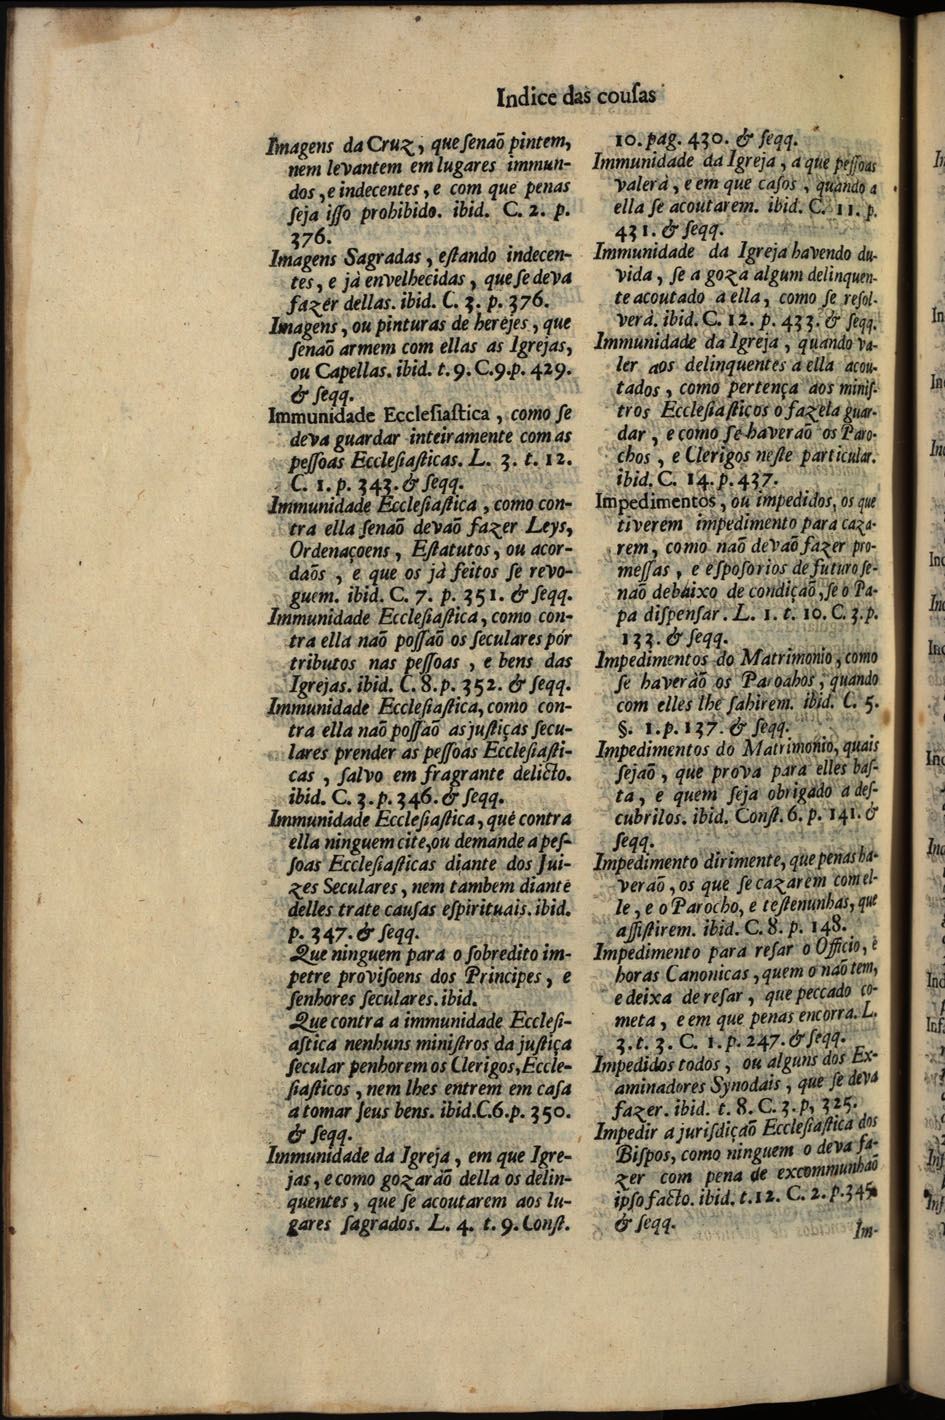 Indice das couſas
Imagens da Cruz, que ſenaõ pintem,
nem levantem em lugares immun-
dos, e indecentes, e com que penas
ſeja iſſo prohibido. ibid. C. 2. p.
376.
Imagens Sagradas, eſtando indecen-
tes, e jà envelhecidas, que ſe deva
fazer dellas. ibid. C. 3. p. 376.
Imagens, ou pinturas de herejes, que
ſenaõ armem com ellas as Igrejas,
ou Capellas. ibid. t. 9. C.9.p. 429.
& ſeqq.
Immunidade Eccleſiaſtica, como ſe
deva guardar inteiramente com as
peſſoas Eccleſiaſticas. L. 3. t. 12.
C. 1. p. 343. & ſeqq.
Immunidade Eccleſiaſtica, como con-
tra ella ſenaõ devaõ fazer Leys,
Ordenaçoens, Eſtatutos, ou acor-
daõs, e que os jà feitos ſe revo-
guem. ibid. C. 7. p. 351. & ſeqq.
Immunidade Eccleſiaſtica, como con-
tra ella naõ poſſaõ os ſeculares pór
tributos nas peſſoas, e bens das
Igrejas. ibid. C. 8. p. 352. & ſeqq.
Immunidade Eccleſiaſtica, como con-
tra ella naõ poſſaõ as juſtiças ſecu-
lares prender as peſſoas Eccleſiaſti-
cas, ſalvo em fragrante delicto.
ibid. C. 3. p. 346. & ſeqq.
Immunidade Eccleſiaſtica, que contra
ella ninguem cite, ou demande a peſ-
ſoas Eccleſiaſticas diante dos Jui-
zes Seculares, nem tambem diante
delles trate cauſas eſpirituais. ibid.
p. 347. & ſeqq.
Que ninguem para o ſobredito im-
petre proviſoens dos Principes, e
ſenhores ſeculares. ibid.
Que contra a immunidade Eccleſi-
aſtica nenhuns miniſtros da juſtiça
ſecular penhorem os Clerigos, Eccle-
ſiaſticos, nem lhes entrem em caſa
a tomar ſeus bens. ibid.C.6.p. 350.
& ſeqq.
Immunidade da Igreja, em que Igre-
jas, e como gozaràõ della os delin-
quentes, que ſe acoutarem aos lu-
gares ſagrados. L. 4. t. 9. Conſt.
10. pag. 430. & ſeqq.
Immunidade da Igreja, a que peſſoas
valerà, e em que caſos, quando a
ella ſe acoutarem. ibid. C. 11. p.
431. & ſeqq.
Immunidade da Igreja havendo du-
vida, ſe a goza algum delinquen-
te acoutado a ella, como ſe reſol-
verà. ibid. C. 12. p. 433. & ſeqq.
Immunidade da Igreja, quando va-
ler aos delinquentes a ella acou-
tados, como pertença aos miniſ-
tros Eccleſiaſticos o fazela guar-
dar, e como ſe haveraõ os Paro-
chos, e Clerigos neſte particular.
ibid. C. 14. p. 437.
Impedimentos, ou impedidos, os que
tiverem impedimento para caza-
rem, como naõ devaõ fazer pro-
meſſas, e eſpoſorios de futuro ſe-
naõ debaixo de condiçaõ, ſe o Pa-
pa diſpenſar. L. 1. t. 10. C. 3. p.
133. & ſeqq.
Impedimentos do Matrimonio, como
ſe haveràõ os Parochos, quando
com elles lhe ſahirem. ibid. C. 5.
§. 1. p. 137. & ſeqq.
Impedimentos do Matrimonio, quais
ſejaõ, que prova para elles baſ-
ta, e quem ſeja obrigado a deſ-
cubrilos. ibid. Conſt. 6. p. 141. &
ſeqq.
Impedimento dirimente, que penas ha-
veraõ, os que ſe cazarem com el-
le, e o Parocho, e teſtenunhas, que
aſſiſtirem. ibid. C. 8. p. 148.
Impedimento para reſar o Officio, e
horas Canonicas, quem o naõ tem,
e deixa de reſar, que peccado co-
meta, e em que penas encorra. L.
3. t. 3. C. 1. p. 247. & ſeqq.
Impedidos todos, ou alguns dos Ex-
aminadores Synodais, que ſe deva
fazer. ibid. t. 8. C. 3. p, 325.
Impedir a juriſdiçaõ Eccleſiaſtica dos
Biſpos, como ninguem o deva fa-
zer com pena de excommunhaõ
ipſo facto. ibid. t. 12. C. 2. p. 345.
& ſeqq.
Im-